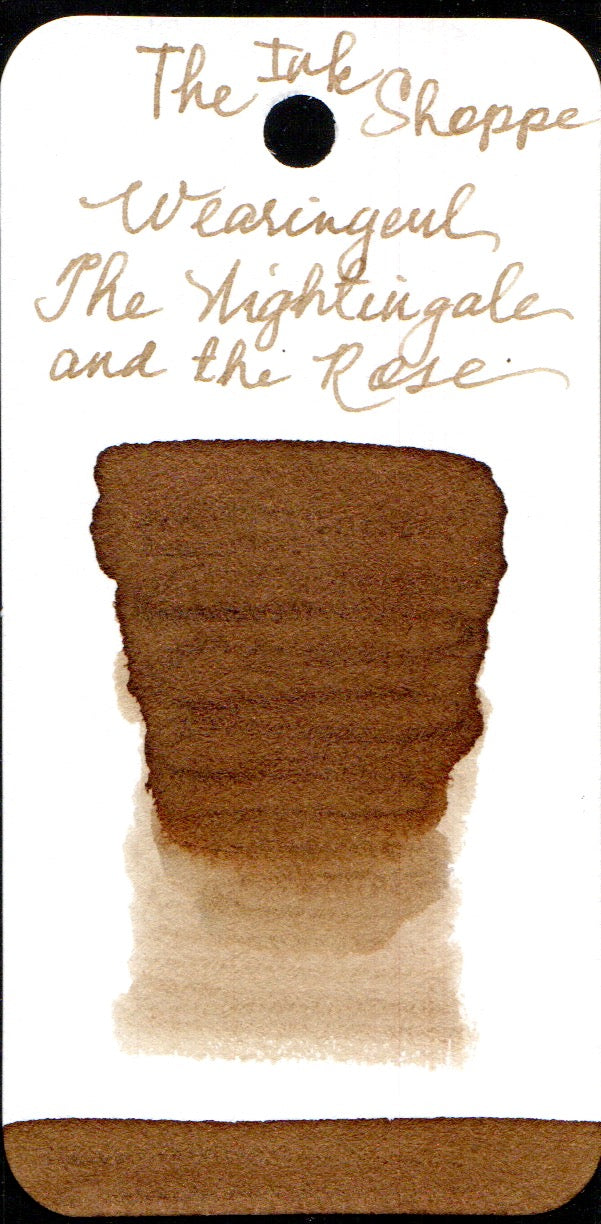 The Ink Shoppe
Wearingeul
The Nightingale
and the Rose